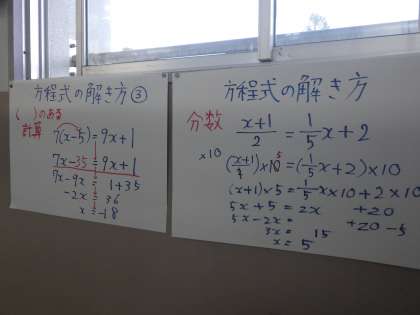 方程式の解き方③
(　)のある
計算
7(x-5)=9x+1
7x-35=9x+1
7x-9x=1+35
-2x=36
x=-18
方程式の解き方
分数
x+1/2=1/5x+2
×10
(x+1/2)×10 5=(1/5x+2)×10
(x+1)×5=1/5x×10+2×10
5x+5=2x +20
5x-2x= +20-5
3x= 15
x=5